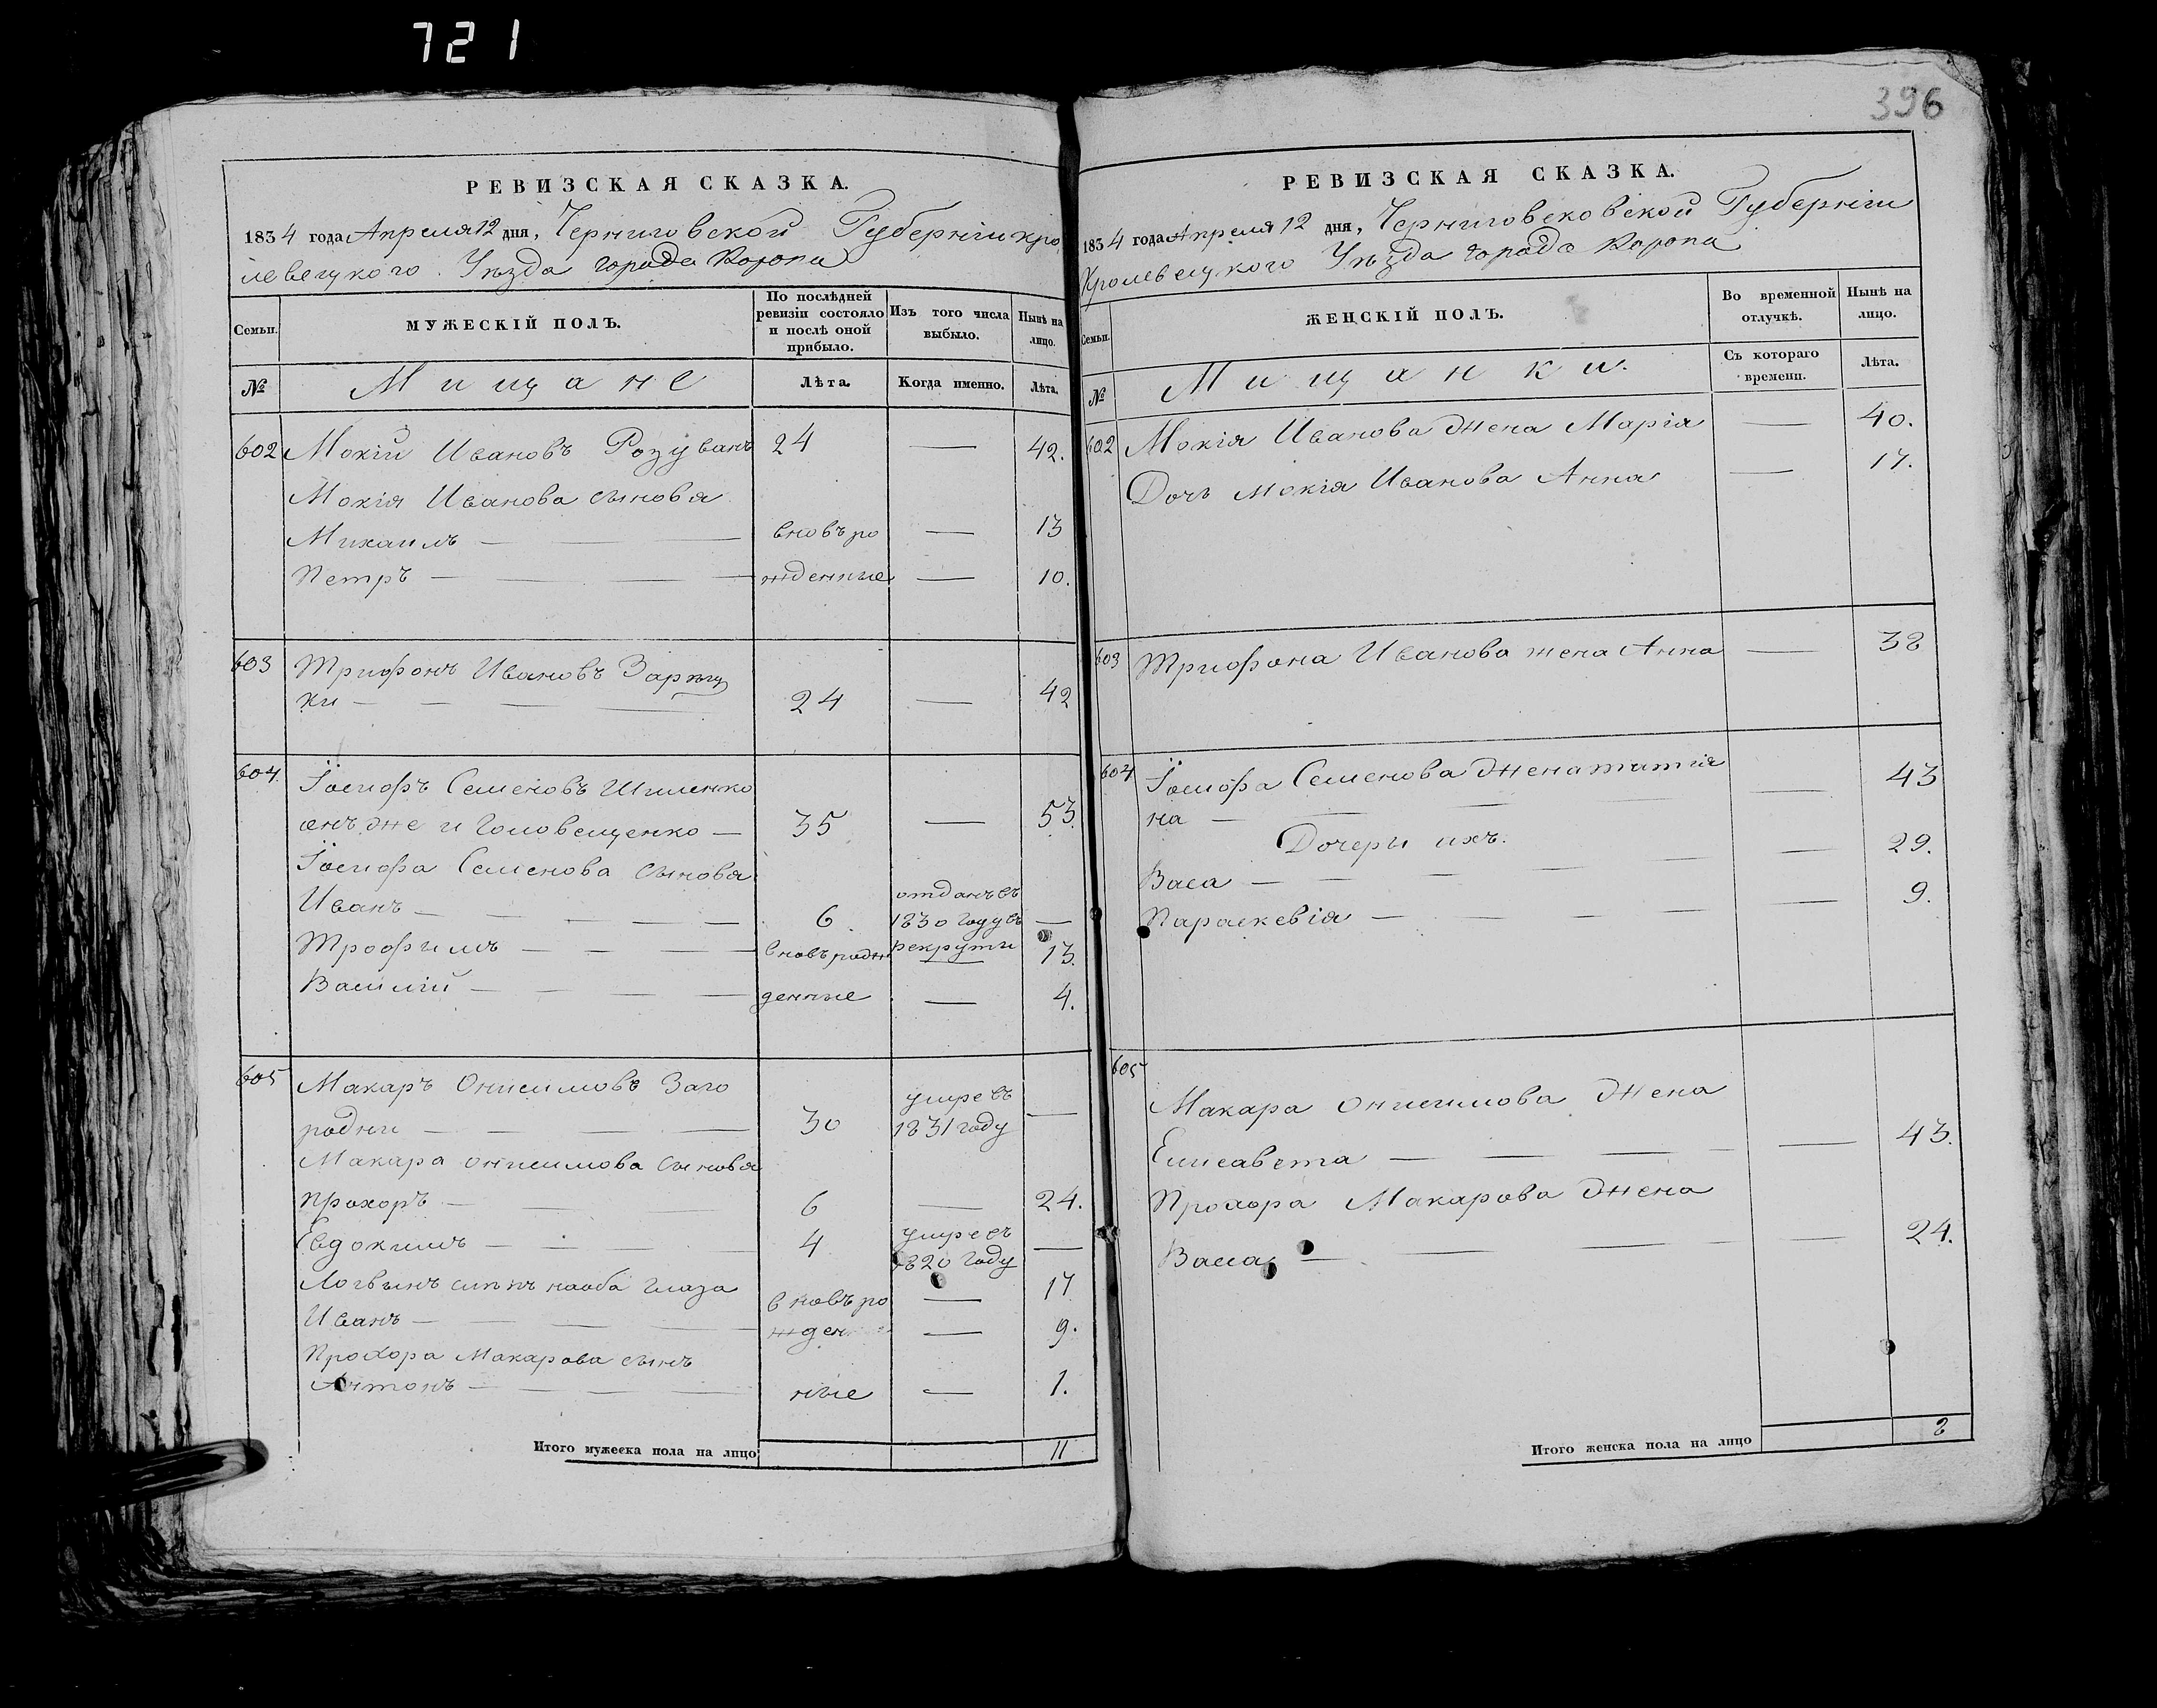 721
396
РЕВИЗСКАЯ СКАЗКА.
1834 года Апреля 12 дня, Черниговской Губерніи кро
левецкого Уѣзда города Коропа
Семьи. МУЖЕСКІЙ ПОЛЪ. По послѣдней ревизіи состояло и послѣ оной прибыло. Изъ того числа выбыло. Нынѣ на лицо.
№ Мищане Лѣта. Когда именно. Лѣта.
602 Мокій Ивановъ Розуванъ 24 — 42.
Мокія Иванова сыновя
Михаилъ — вновъ ро — 13
Петръ — жденные — 10.
603 Трифонъ Ивановъ
ки — 24 — 42
604. Іосифъ Семеновъ Шиленко
онъ же и Головещенко — 35 — 53.
Іосифа Семенова сыновя
Иванъ — 6. отданъ въ 1830 году въ рекруты —
Трофимъ — вновъ рож — 13.
Василій — денные — 4.
605 Макаръ Онисимовъ Заго
родни — 30 умре въ 1831 году —
Макара Онисимова сыновя
Прохоръ — 6 — 24.
Евдокимъ — 4 умре въ 1820 году —
Логвинъ слѣпъ на оба глаза вновъ ро — 17
Иванъ — жден — 9.
Прохора Макарова сынъ
Антонъ — ные — 1.
Итого мужеска пола на лицо 11
РЕВИЗСКАЯ СКАЗКА.
1834 года Апреля 12 дня, Черниговсковской Губерніи
Кролевецкого Уѣзда города Коропа
Семьи. ЖЕНСКІЙ ПОЛЪ. Во временной отлучкѣ. Нынѣ на лицо.
№ Мищанки. Съ котораго времени. Лѣта.
602 Мокія Иванова жена Марія — 40.
Дочь Мокія Иванова Анна — 17.
603 Трифона Иванова жена Анна — 38
604 Іосифа Семенова жена Татия
на — 43
Дочеры ихъ.
Васа — 29.
Параскевія — 9.
605
Макара Онисимова жена
Елисавета — 43.
Прохора Макарова жена
Васа — 24.
Итого женска пола на лицо 8